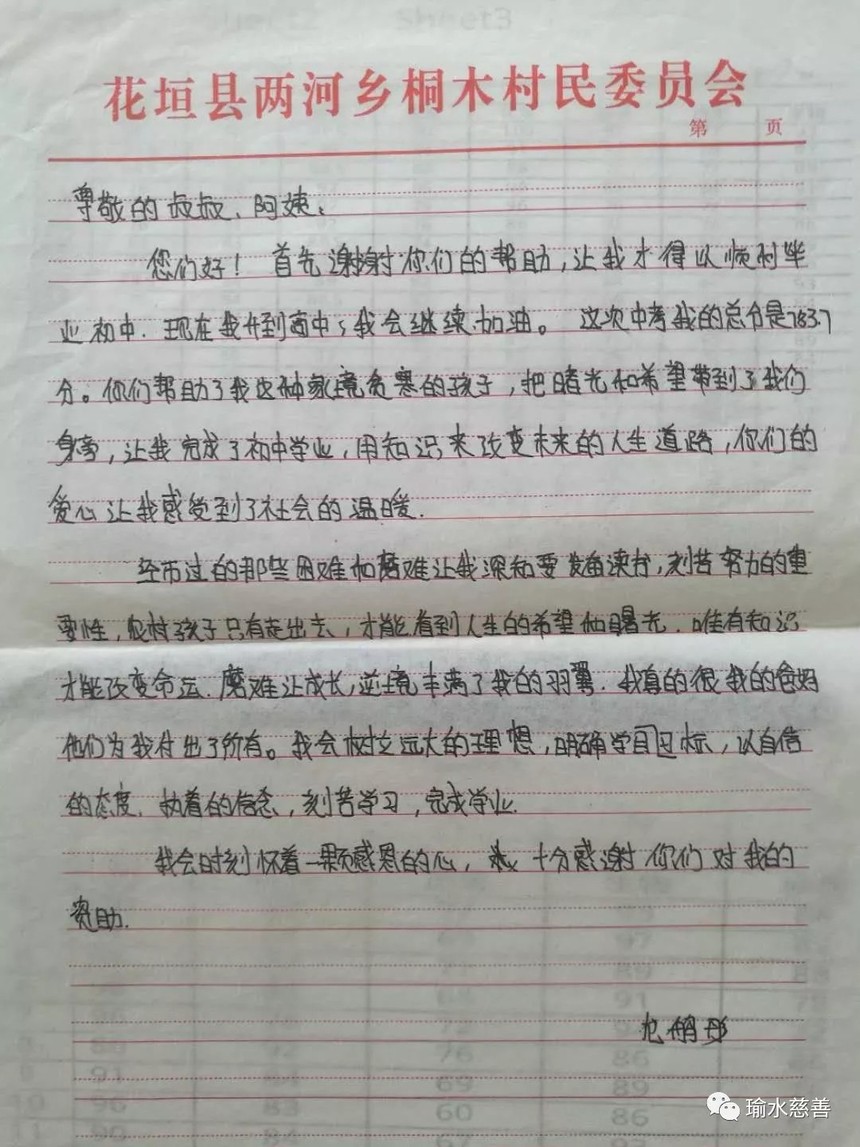 花垣县两河乡桐木村民委员会
第 页
尊敬的叔叔、阿姨:
您们好！首先谢谢你们的帮助，让我才得以顺利毕
业初中．现在我升到高中，我会继续加油。这次中考我的总分是763.7
分。你们帮助了我这种家境贫寒的孩子，把曙光和希望带到了我们
身旁，让我完成了初中学业，用知识来改变未来的人生道路，你们的
爱心让我感受到了社会的温暖．
经历过的那些困难和磨难让我深知要发奋读书，刻苦努力的重
要性，农村孩子只有走出去，才能看到人生的希望和曙光．唯有知识
才能改变命运．磨难让成长，逆境丰满了我的羽翼．我真的很我的爸妈
他们为我付出了所有。我会树立远大的理想，明确学习目标，以自信
的态度．执着的信念，刻苦学习，完成学业．
我会时刻怀着一颗感恩的心，十分感谢你们对我的
资助．
瑜水慈善